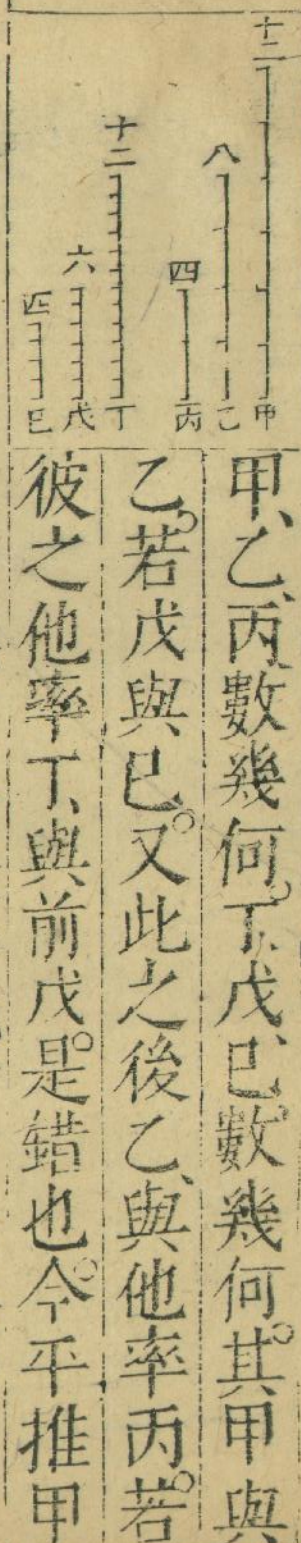 十二
甲
八
乙
四
丙
十二
丁
六
戊
四
巳
甲、乙、丙數幾何。丁、戊、巳、數幾何。其甲與
乙。若戊與巳。又此之後乙、與他率丙。若
彼之他率丁、與前戊。是錯也。今平推甲